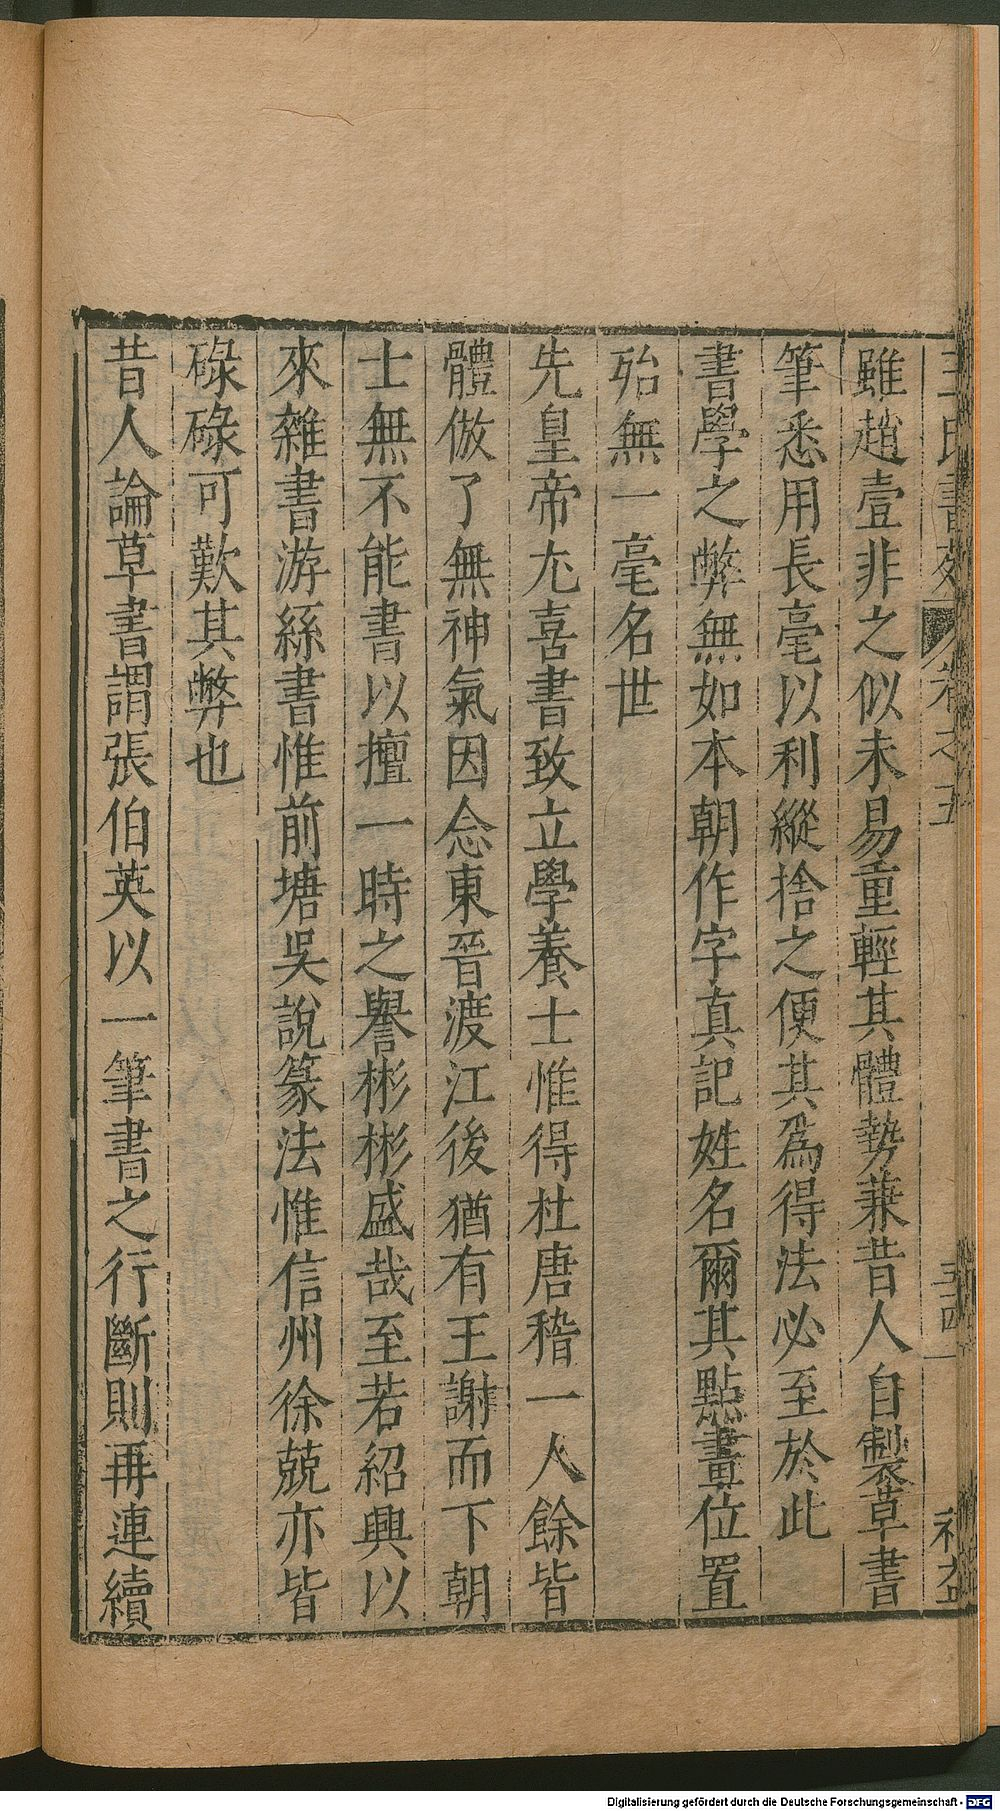 王氏書苑 卷之五 五四 補益
雖趙壹非之似未易重輕其體勢蒹昔人自製草書
筆悉用長毫以利縱捨之便其爲得法必至於此
書學之弊無如本朝作字真記姓名爾其點畫位置
殆無一毫名世
先皇帝尤喜書致立學養士惟得杜唐稽一人餘皆
體倣了無神氣因念東晉渡江後猶有王謝而下朝
士無不能書以擅一時之譽彬彬盛哉至若紹興以
來雜書游絲書惟前塘吳說篆法惟信州徐兢亦皆
碌碌可歎其弊也
昔人論草書謂張伯英以一筆書之行斷則再連續
Digitalisierung gefördert durch die Deutsche Forschungsgemeinschaft - DFG